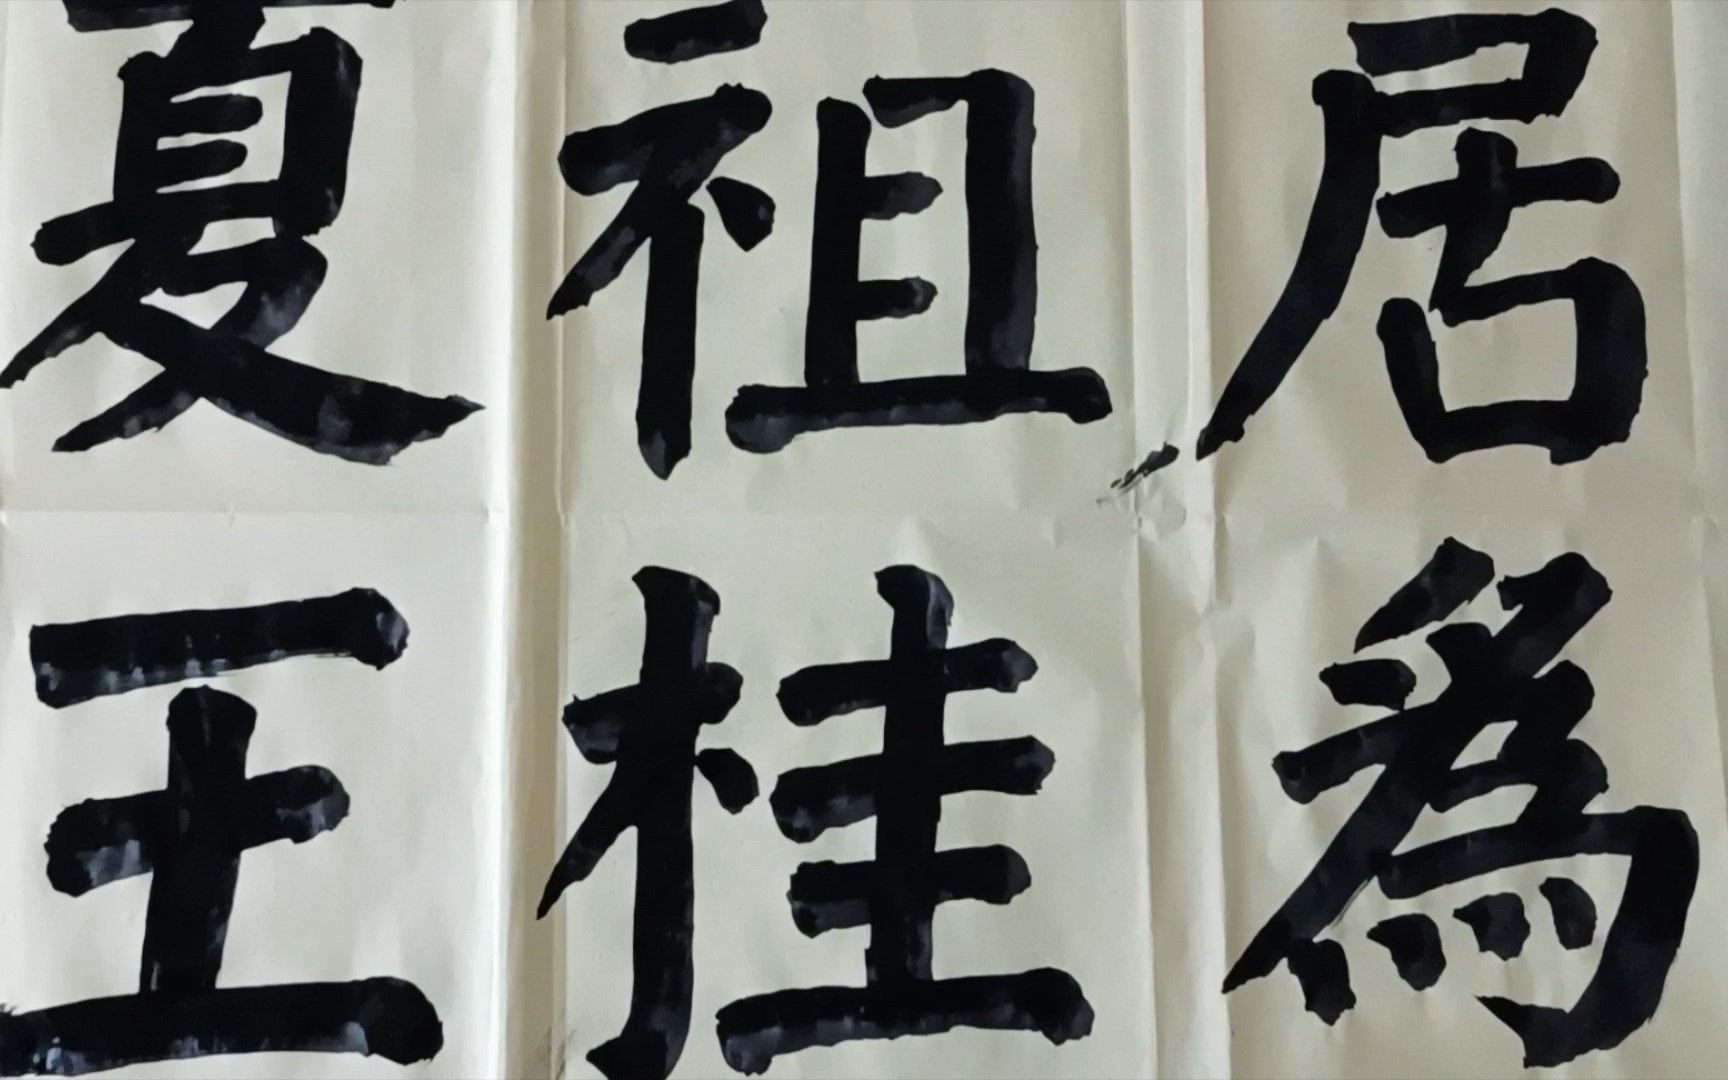 居爲
祖桂
夏王